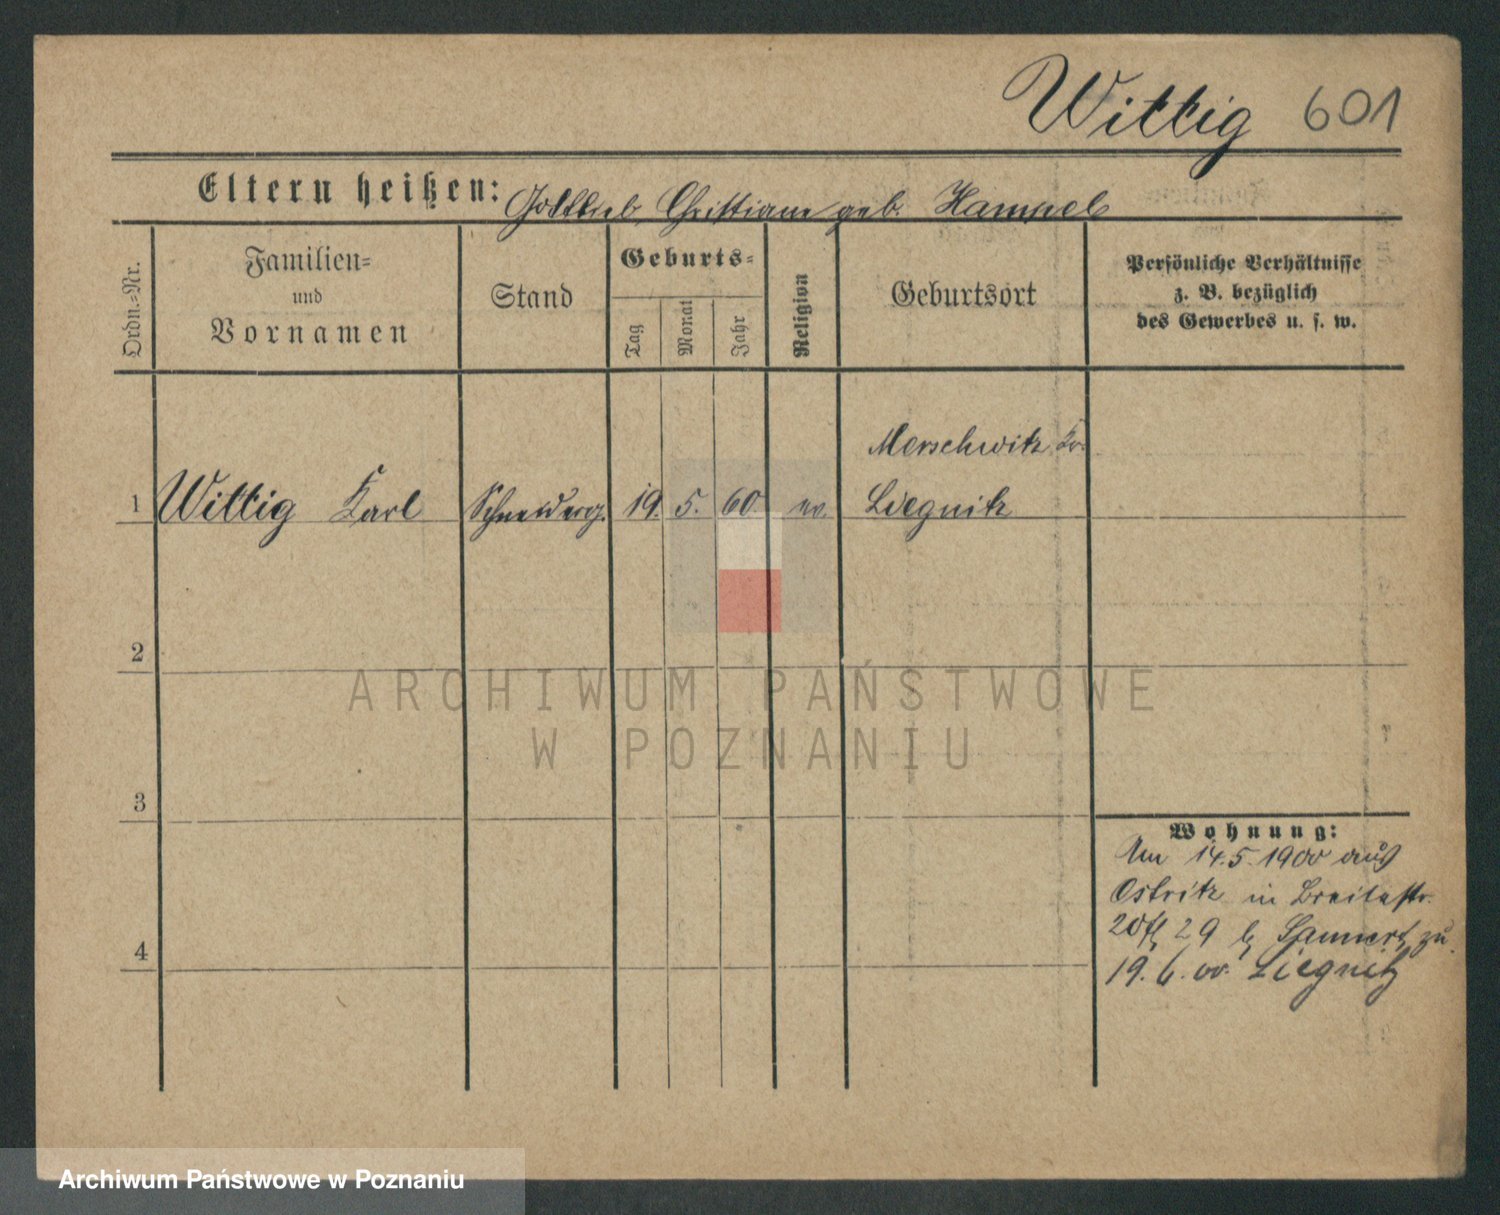 Wittig 601
Eltern heißen: Gottlieb, Christiane geb. Hampel
Ordn.=Nr.
Familien=
und
Vornamen
Stand
Geburts=
Tag
Monat
Jahr
Religion
Geburtsort
Persönliche Verhältnisse
z. B. bezüglich
des Gewerbes u. s. w.
Merschwitz Kr.
1 Wittig Karl Schneiderg. 19. 5. 60 ev. Liegnitz
2
ARCHIWUM PAŃSTWOWE
W POZNANIU
3
Wohnung:
Am 14.5.1900 aus
Ostritz in Breitestr.
20 29 b zu
4
19. 6. 00. Liegnitz
Archiwum Państwowe w Poznaniu